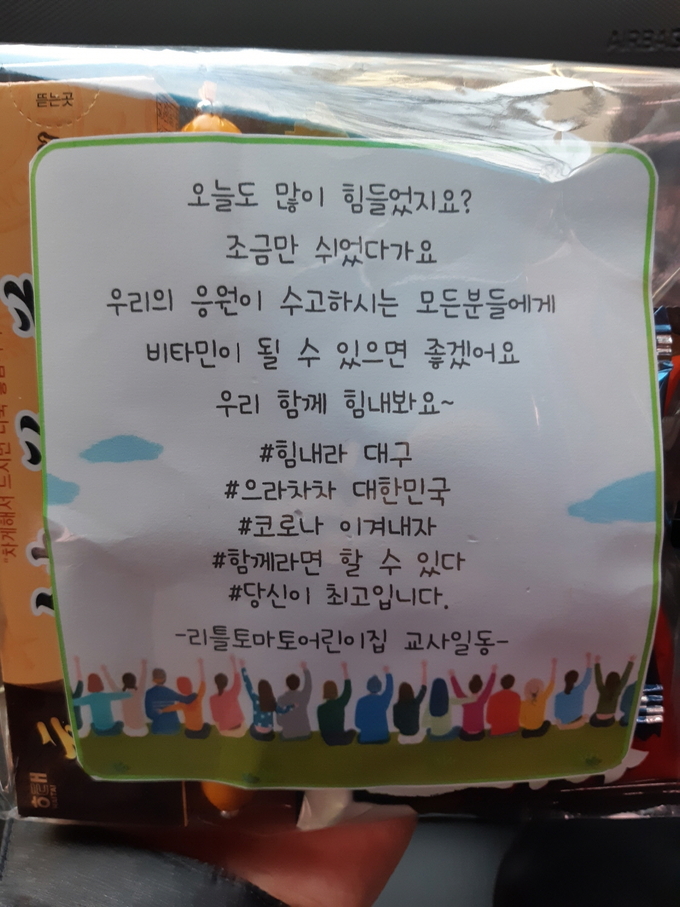 AIRBAG
뜯는곳
오늘도 많이 힘들었지요?
조금만 쉬었다가요
우리의 응원이 수고하시는 모든분들에게
비타민이 될 수 있으면 좋겠어요
우리 함께 힘내봐요~
#힘내라 대구
#으라차차 대한민국
#코로나 이겨내자
#함께라면 할 수 있다
#당신이 최고입니다.
-리틀토마토어린이집 교사일동-
"차게해서 드시면 더욱
해태